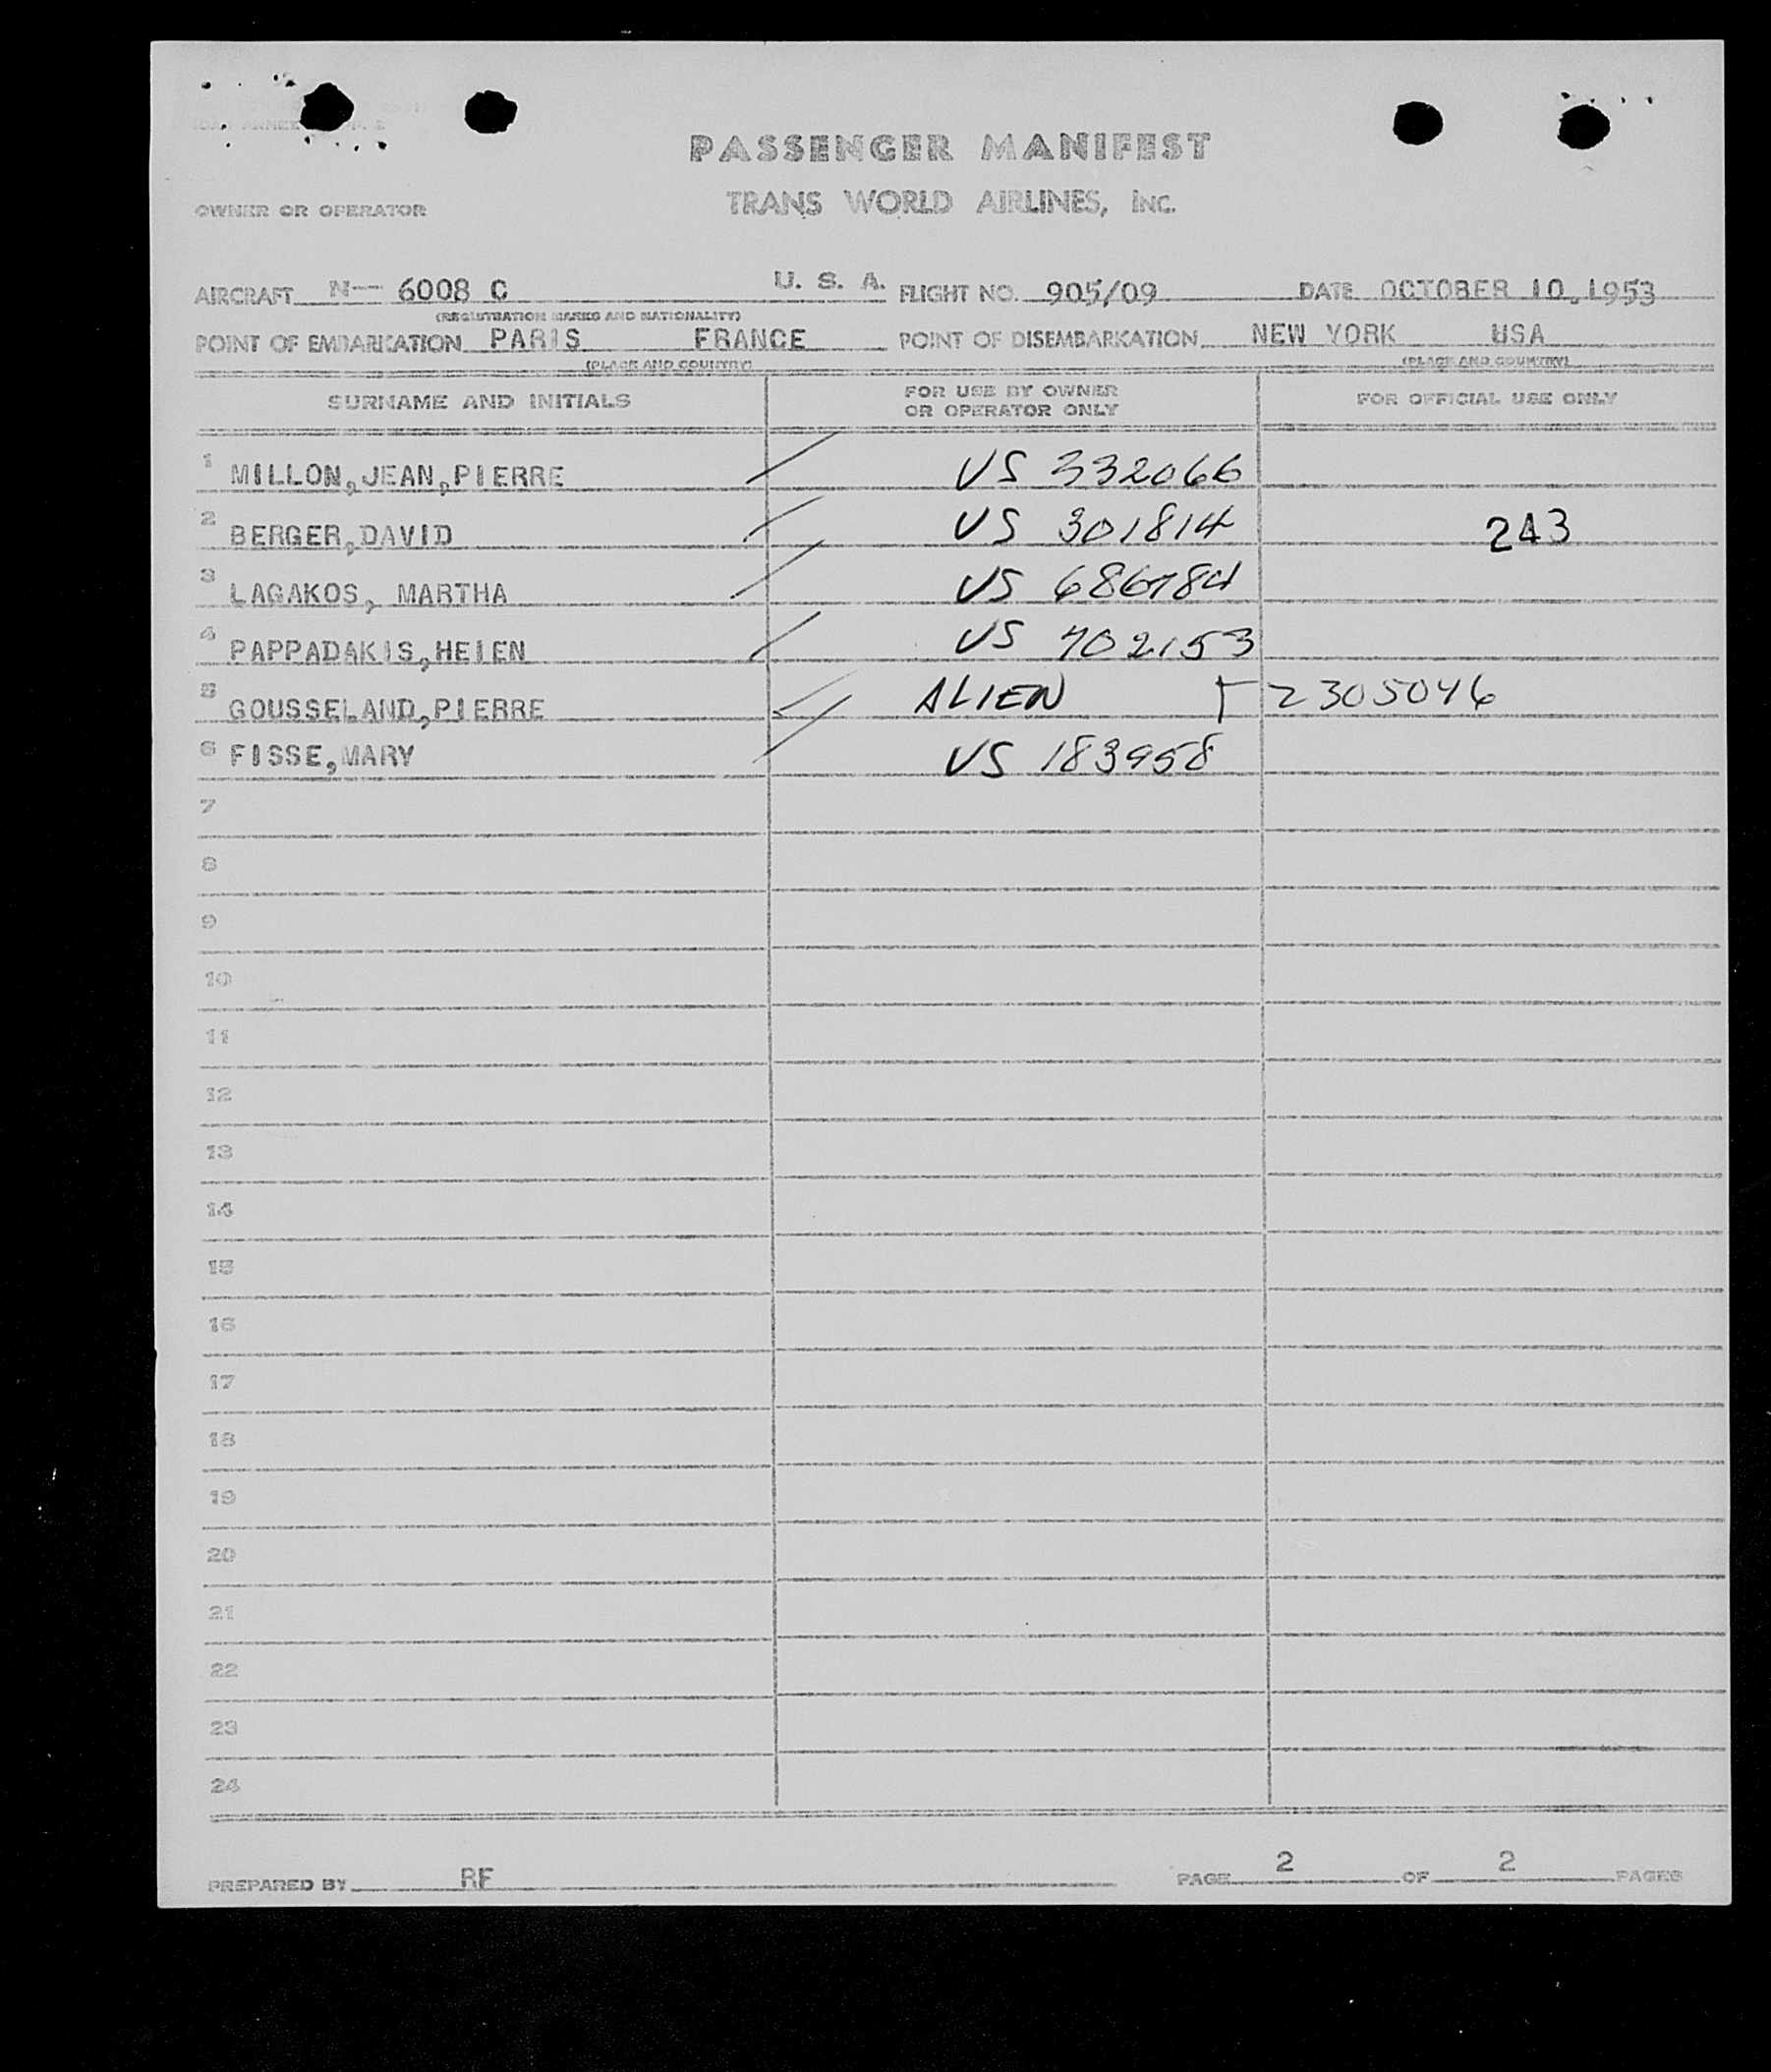 PASSENGER MANIFEST
TRANS WORLD AIRLINES, INC.
OWNER OR OPERATOR
AIRCRAFT N-- 6008 C U. S. A. FLIGHT NO. 905/09 DATE OCTOBER 10,1953
(REGISTRATION MARKS AND NATIONALITY)
POINT OF EMBARKATION PARIS FRANCE POINT OF DISEMBARKATION NEW YORK USA
(PLACE AND COUNTRY) (PLACE AND COUNTRY)
SURNAME AND INITIALS FOR USE BY OWNER OR OPERATOR ONLY FOR OFFICIAL USE ONLY
1 MILLON,JEAN,PIERRE US 332066
2 BERGER,DAVID US 301814 243
3 LAGAKOS, MARTHA US 686784
4 PAPPADAKIS,HELEN US 702153
5 GOUSSELAND,PIERRE ALIEN T 2305046
6 FISSE,MARY US 183958
7
8
9
10
11
12
13
14
15
16
17
18
19
20
21
22
23
24
PREPARED BY RF PAGE 2 OF 2 PAGES